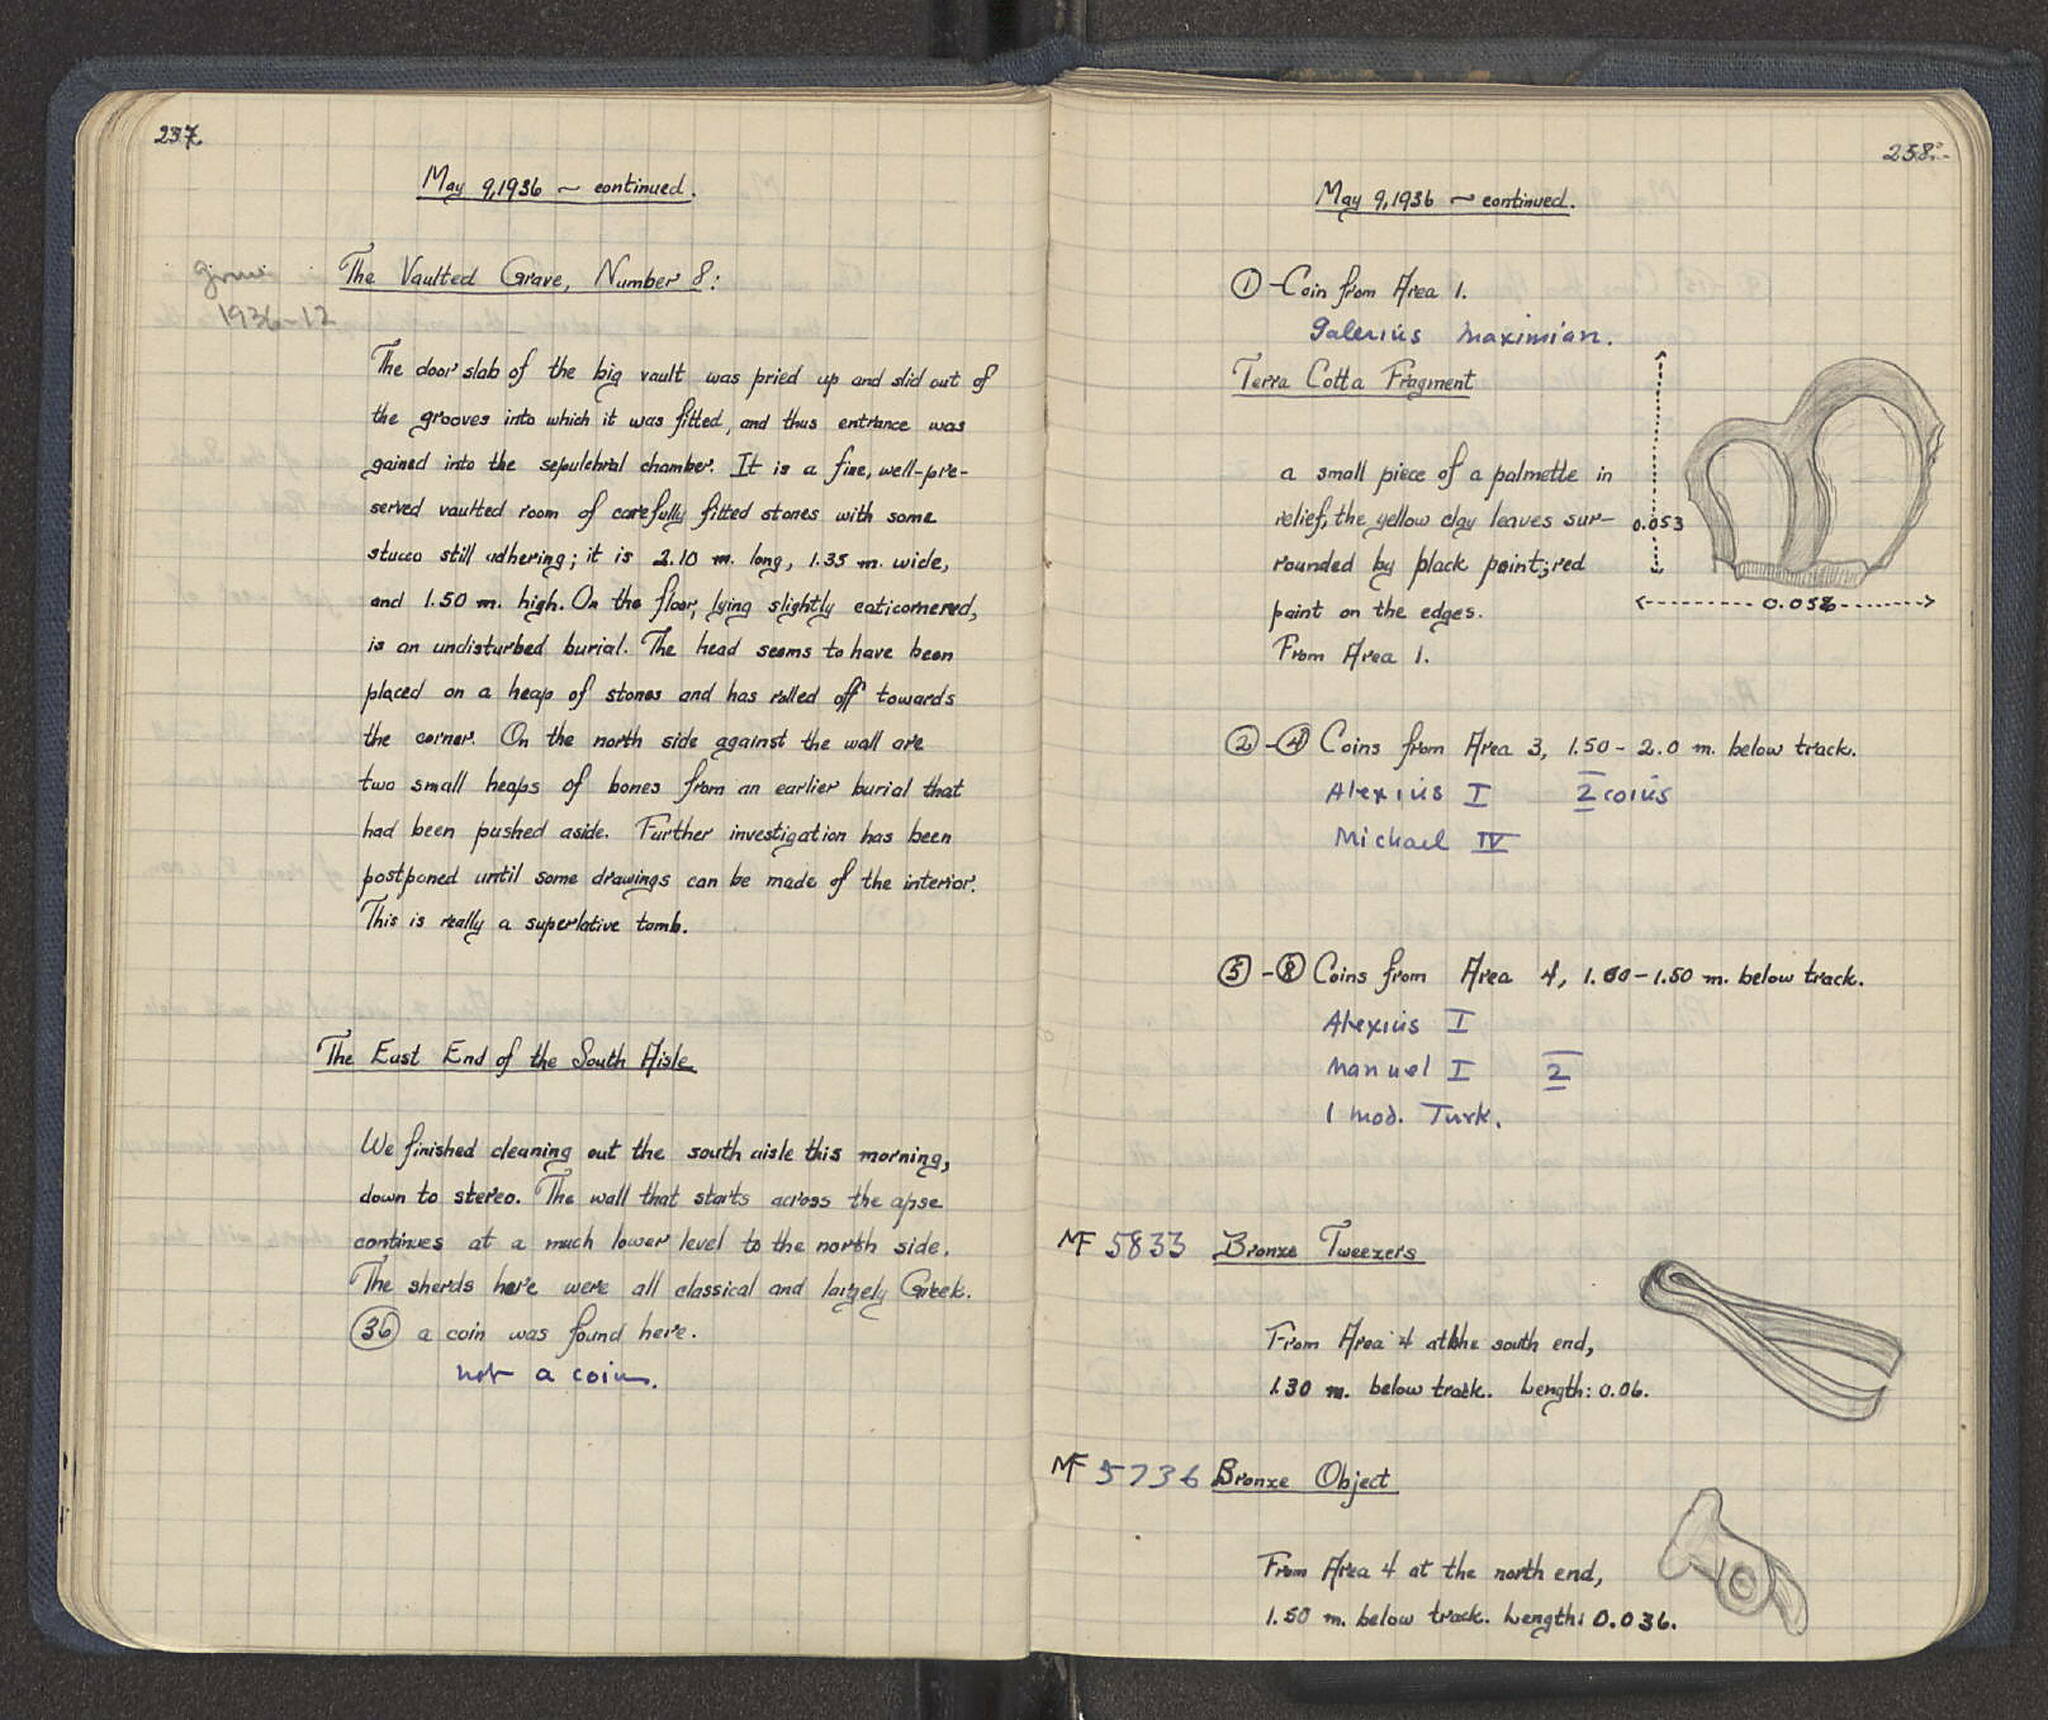 237.
May 9, 1936 ~ continued.
grave
1936-12
The Vaulted Grave, Number 8:
The door slab of the big vault was pried up and slid out of
the grooves into which it was fitted, and thus entrance was
gained into the sepulchral chamber. It is a fine, well-pre-
served vaulted room of carefully fitted stones with some
stucco still adhering; it is 2.10 m. long, 1.35 m. wide,
and 1.50 m. high. On the floor, lying slightly caticornered,
is an undisturbed burial. The head seems to have been
placed on a heap of stones and has rolled off towards
the corner. On the north side against the wall are
two small heaps of bones from an earlier burial that
had been pushed aside. Further investigation has been
postponed until some drawings can be made of the interior.
This is really a superlative tomb.
The East End of the South Aisle
We finished cleaning out the south aisle this morning,
down to stereo. The wall that starts across the apse
continues at a much lower level to the north side.
The sherds here were all classical and largely Greek.
36 a coin was found here.
not a coin.
238.
May 9, 1936 ~ continued.
1 - Coin from Area 1.
Galerius Maximian.
Terra Cotta Fragment
a small piece of a palmette in
relief, the yellow clay leaves sur-
rounded by black paint; red
paint on the edges.
From Area 1.
0.053
0.058
2 - 4 Coins from Area 3, 1.50 - 2.0 m. below track.
Alexius I 2 coins
Michael IV
5 - 8 Coins from Area 4, 1.00 - 1.50 m. below track.
Alexius I
Manuel I 2
1 mod. Turk.
MF 5833 Bronze Tweezers
From Area 4 at the south end,
1.30 m. below track. Length: 0.06.
MF 5736 Bronze Object
From Area 4 at the north end,
1.50 m. below track. Length: 0.036.